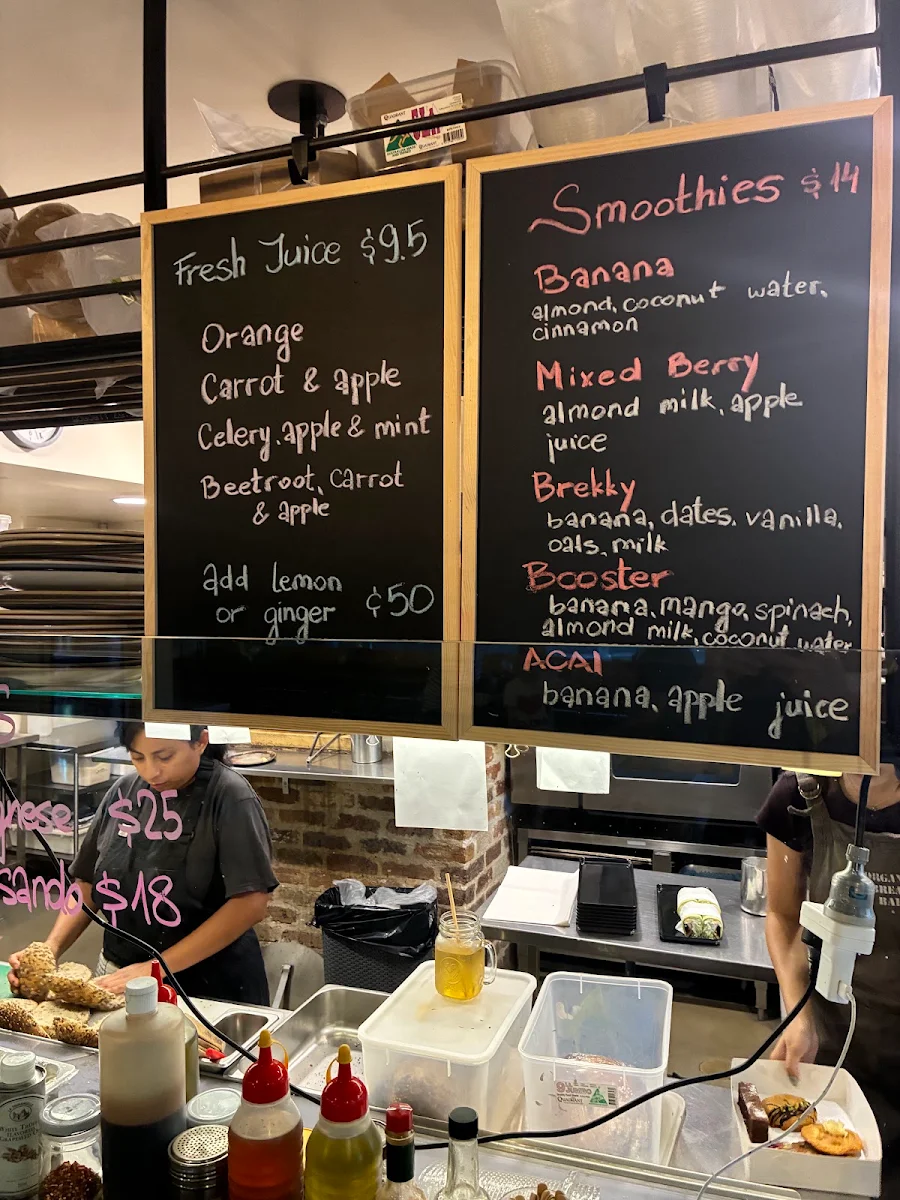 Fresh Juice $9.5
Orange
Carrot & apple
Celery, apple & mint
Beetroot, carrot
& apple
add lemon
or ginger ¢50
Smoothies $14
Banana
almond, coconut water,
cinnamon
Mixed Berry
almond milk, apple
juice
Brekky
banana, dates, vanilla,
oats, milk
Booster
banana, mango, spinach,
almond milk, coconut water
ACAI
banana, apple juice
$25
sando $18